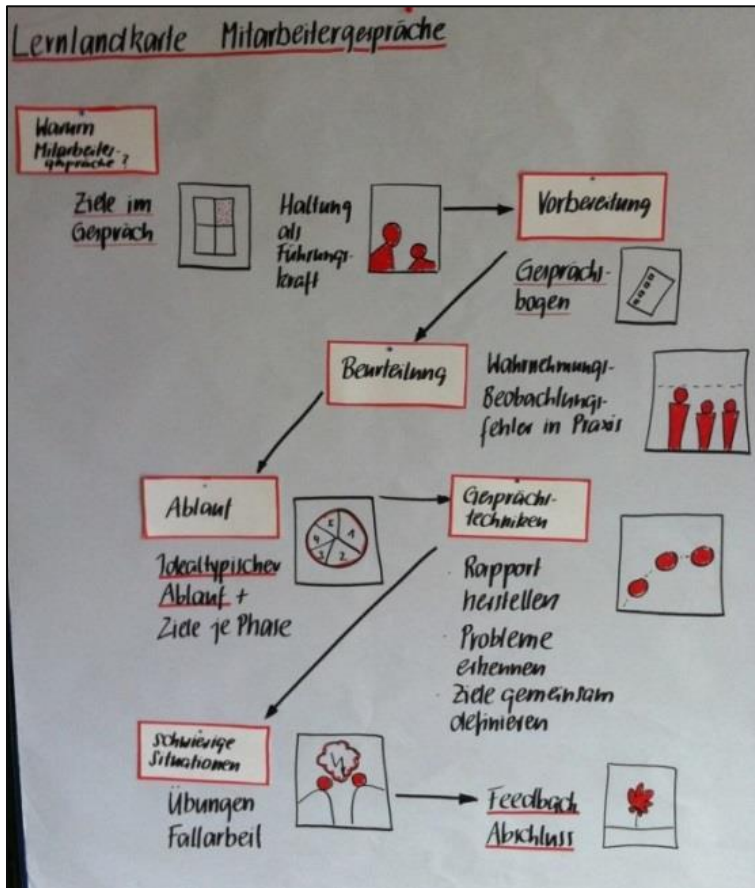 Lernlandkarte Mitarbeitergespräche
Warum
Mitarbeiter-
gespräche?
Ziele im
Gespräch
Haltung
als
Führungs-
kraft
Vorbereitung
Gesprächs-
bogen
Beurteilung
Wahrnehmungs-
Beobachtungs-
fehler in Praxis
Ablauf
5
4
1
3
2
Idealtypischer
Ablauf +
Ziele je Phase
Gesprächs-
techniken
Rapport
herstellen
Probleme
erkennen
Ziele gemeinsam
definieren
schwierige
Situationen
Übungen
Fallarbeit
Feedback
Abschluss